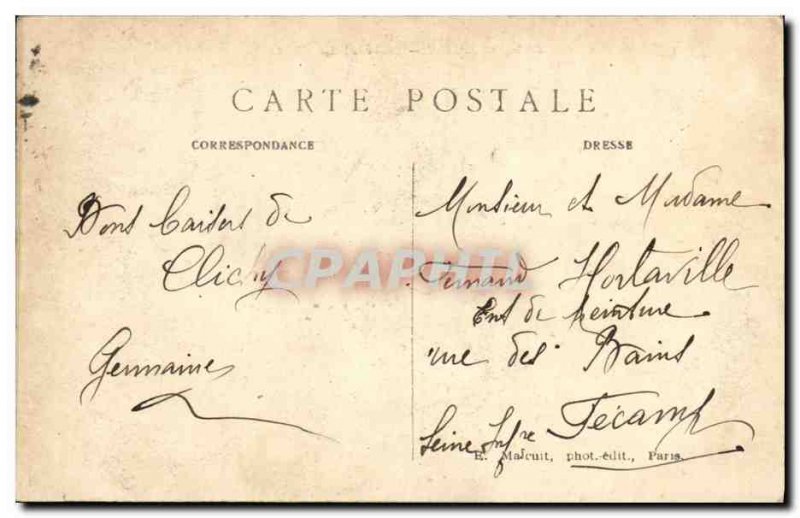 CARTE POSTALE
CORRESPONDANCE
DRESSE
Bons baisers de
Clichy
Germaine
Monsieur et Madame
Fernand Hortaville
Ent de Peinture
rue des Bains
Fécamp
Seine Infre
E. Malcuit, phot.-édit., Paris.
CPAPHIL